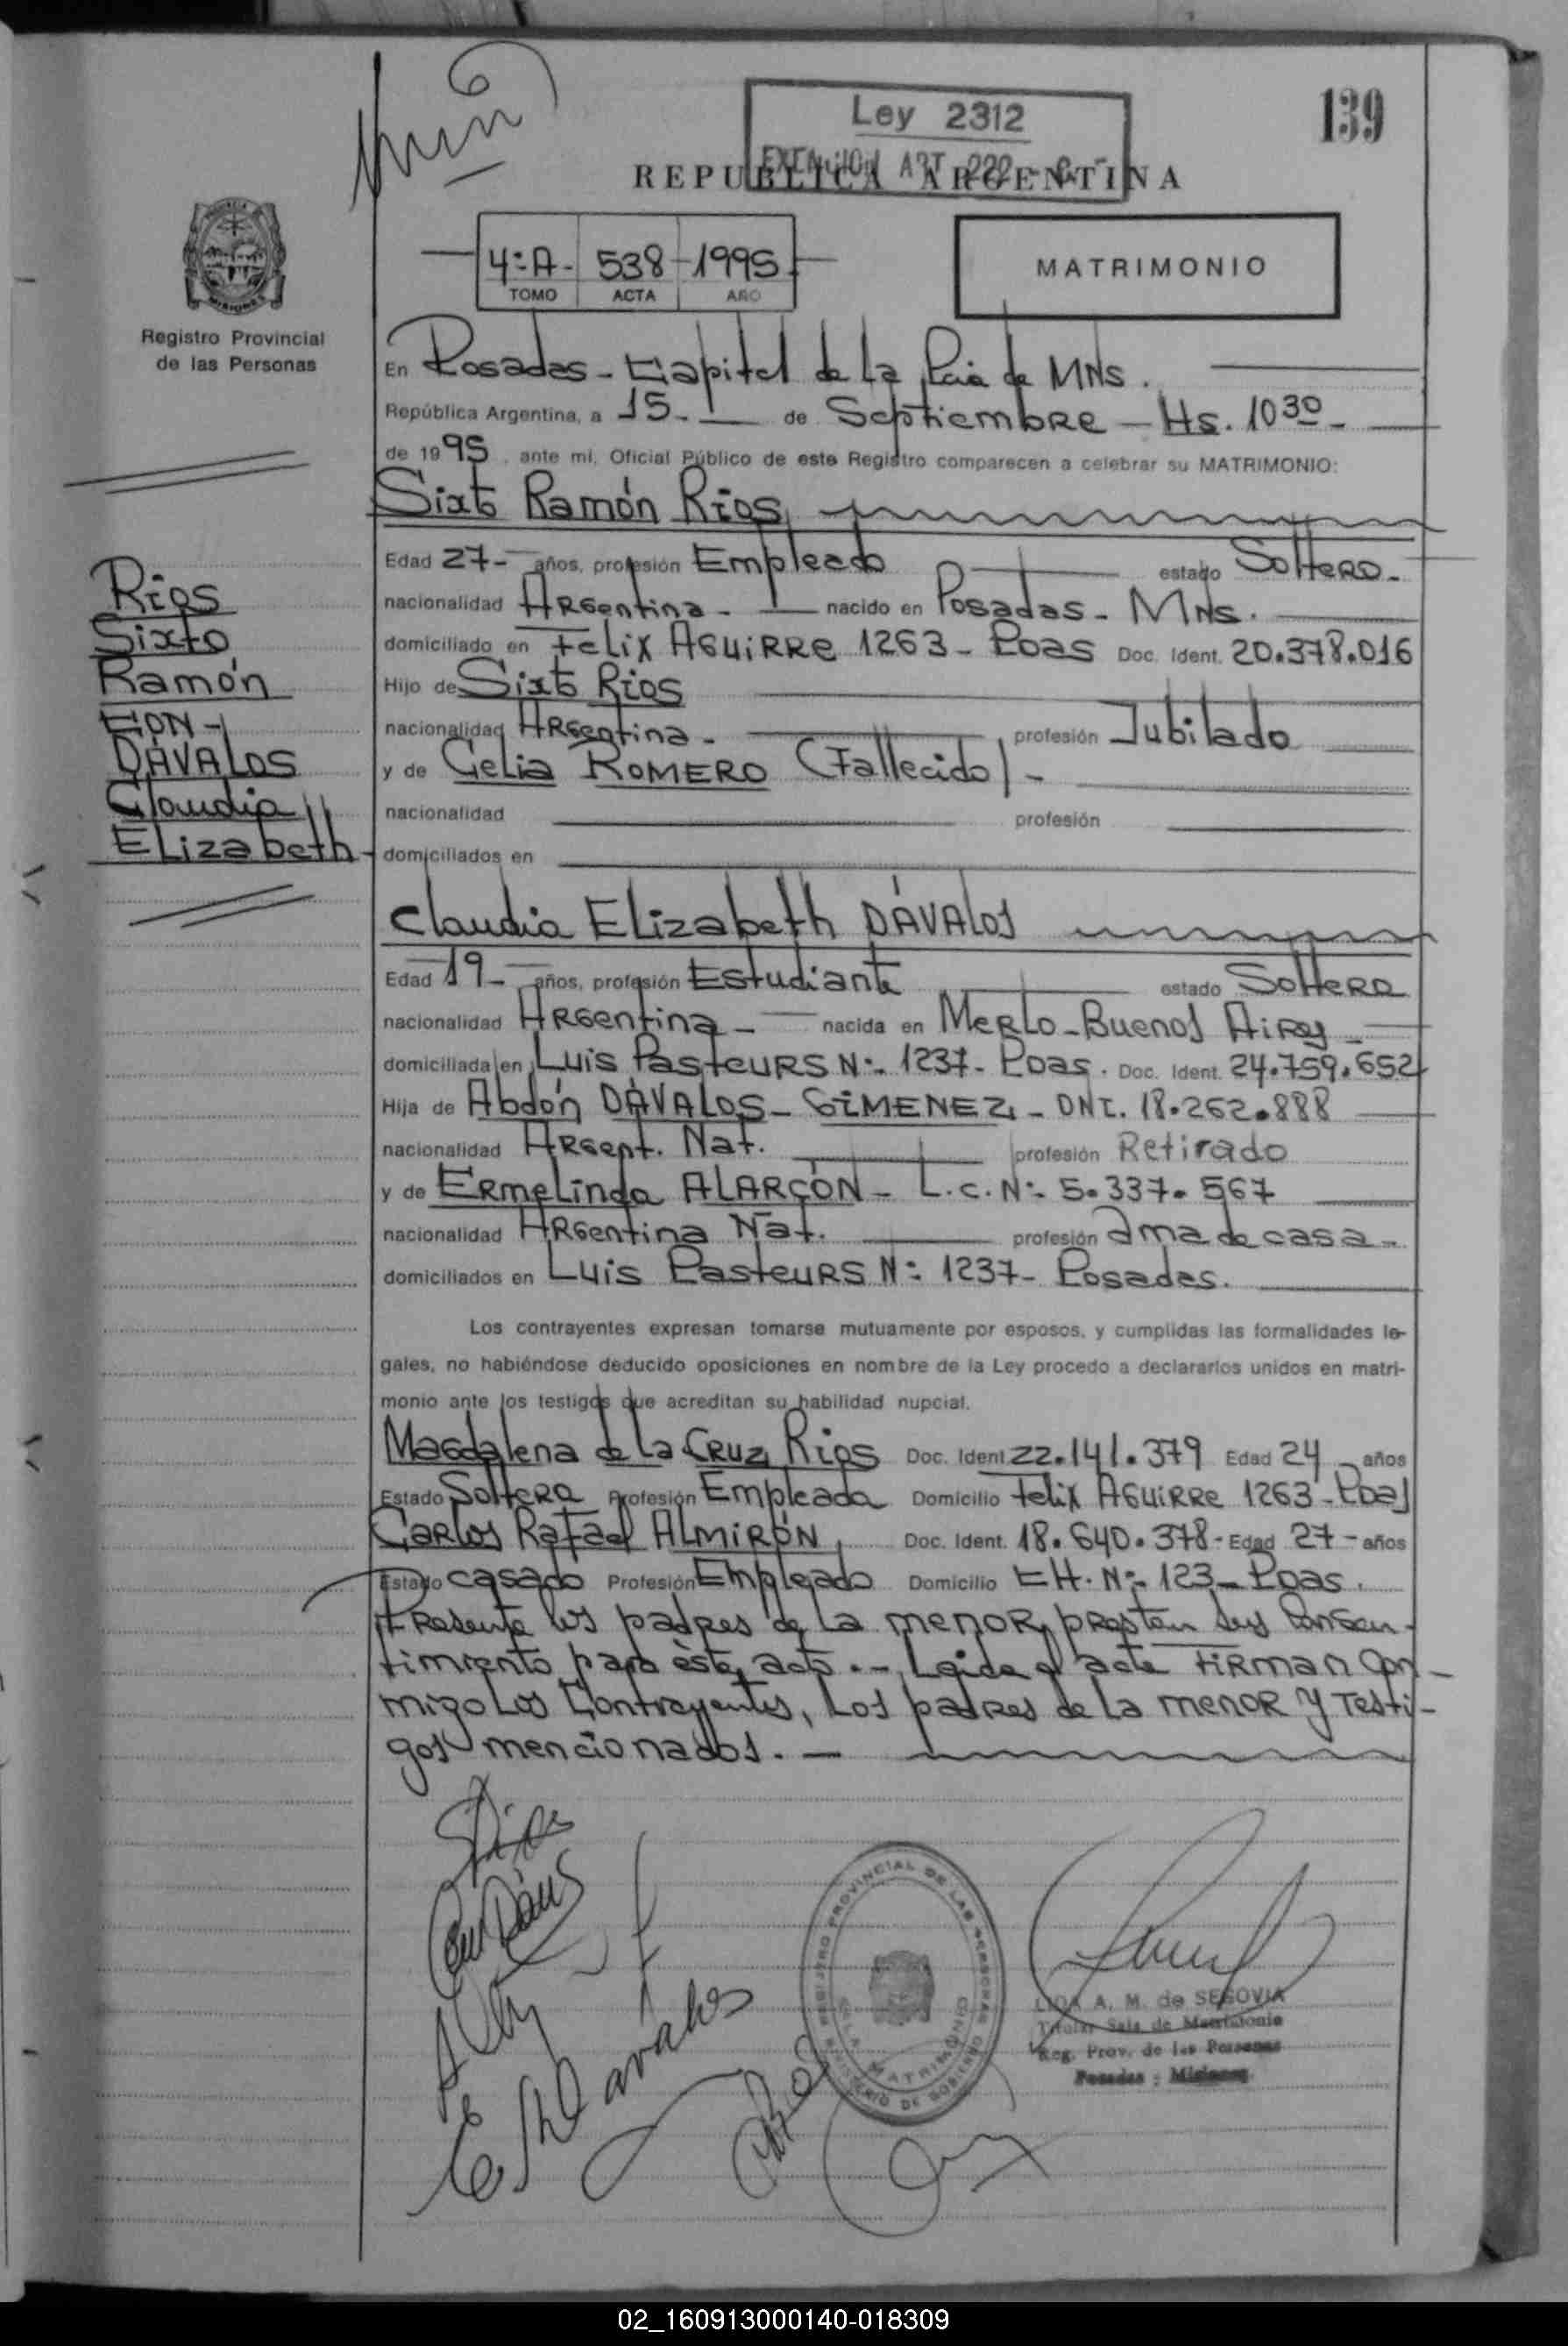 139
Ley 2312
REPUBLICA ARGENTINA
4º A- 538 1995
TOMO ACTA AÑO
MATRIMONIO
Registro Provincial
de las Personas
En Posadas - Capital de la Pcia de MNs.
República Argentina, a 15 - de Septiembre - Hs. 10 30 -
de 1995, ante mí, Oficial Público de este Registro comparecen a celebrar su MATRIMONIO:
Sixto Ramón Rios
Edad 27 - años, profesión Empleado estado Soltero -
nacionalidad Argentina - nacido en Posadas - MNs.
domiciliado en Felix Aguirre 1263 - Poas Doc. Ident. 20.378.016
Hijo de Sixto Rios
nacionalidad Argentina - profesión Jubilado
y de Celia ROMERO (Fallecido) -
nacionalidad profesión
domiciliados en
Rios
Sixto
Ramón
CON -
DÁVALOS
Claudia
Elizabeth -
Claudia Elizabeth DÁVALOS
Edad 19 - años, profesión Estudiante estado Soltera
nacionalidad Argentina - nacida en Merlo - Buenos Aires
domiciliada en Luis Pasteurs Nº 1237 - Poas. Doc. Ident. 24.759.652
Hija de Abdón DÁVALOS - GIMENEZ - DNI. 18.262.888
nacionalidad Argent. Nat. profesión Retirado
y de Ermelinda ALARCÓN - L.C. Nº 5.337.567
nacionalidad Argentina Nat. profesión ama de casa -
domiciliados en Luis Pasteurs Nº 1237 - Posadas.
Los contrayentes expresan tomarse mutuamente por esposos, y cumplidas las formalidades le-
gales, no habiéndose deducido oposiciones en nombre de la Ley procedo a declararlos unidos en matri-
monio ante los testigos que acreditan su habilidad nupcial.
Magdalena de la Cruz Rios Doc. Ident 22.141.379 Edad 24 años
Estado Soltera Profesión Empleada Domicilio Felix Aguirre 1263 - Poas
Carlos Rafael ALMIRÓN Doc. Ident. 18.640.378 - Edad 27 - años
Estado casado Profesión Empleado Domicilio CH. Nº 123 - Poas.
Presente los padres de la menor, presten sus consen-
timiento para éste acto. - Leida el acta firman con-
migo los contrayentes, los padres de la menor y testi-
gos mencionados. -
REGISTRO PROVINCIAL DE LAS PERSONAS
MINISTERIO DE GOBIERNO
SALA MATRIMONIO
LIDA A. M. de SEGOVIA
Titular Sala de Matrimonio
Reg. Prov. de las Personas
Posadas - Misiones
02_160913000140-018309